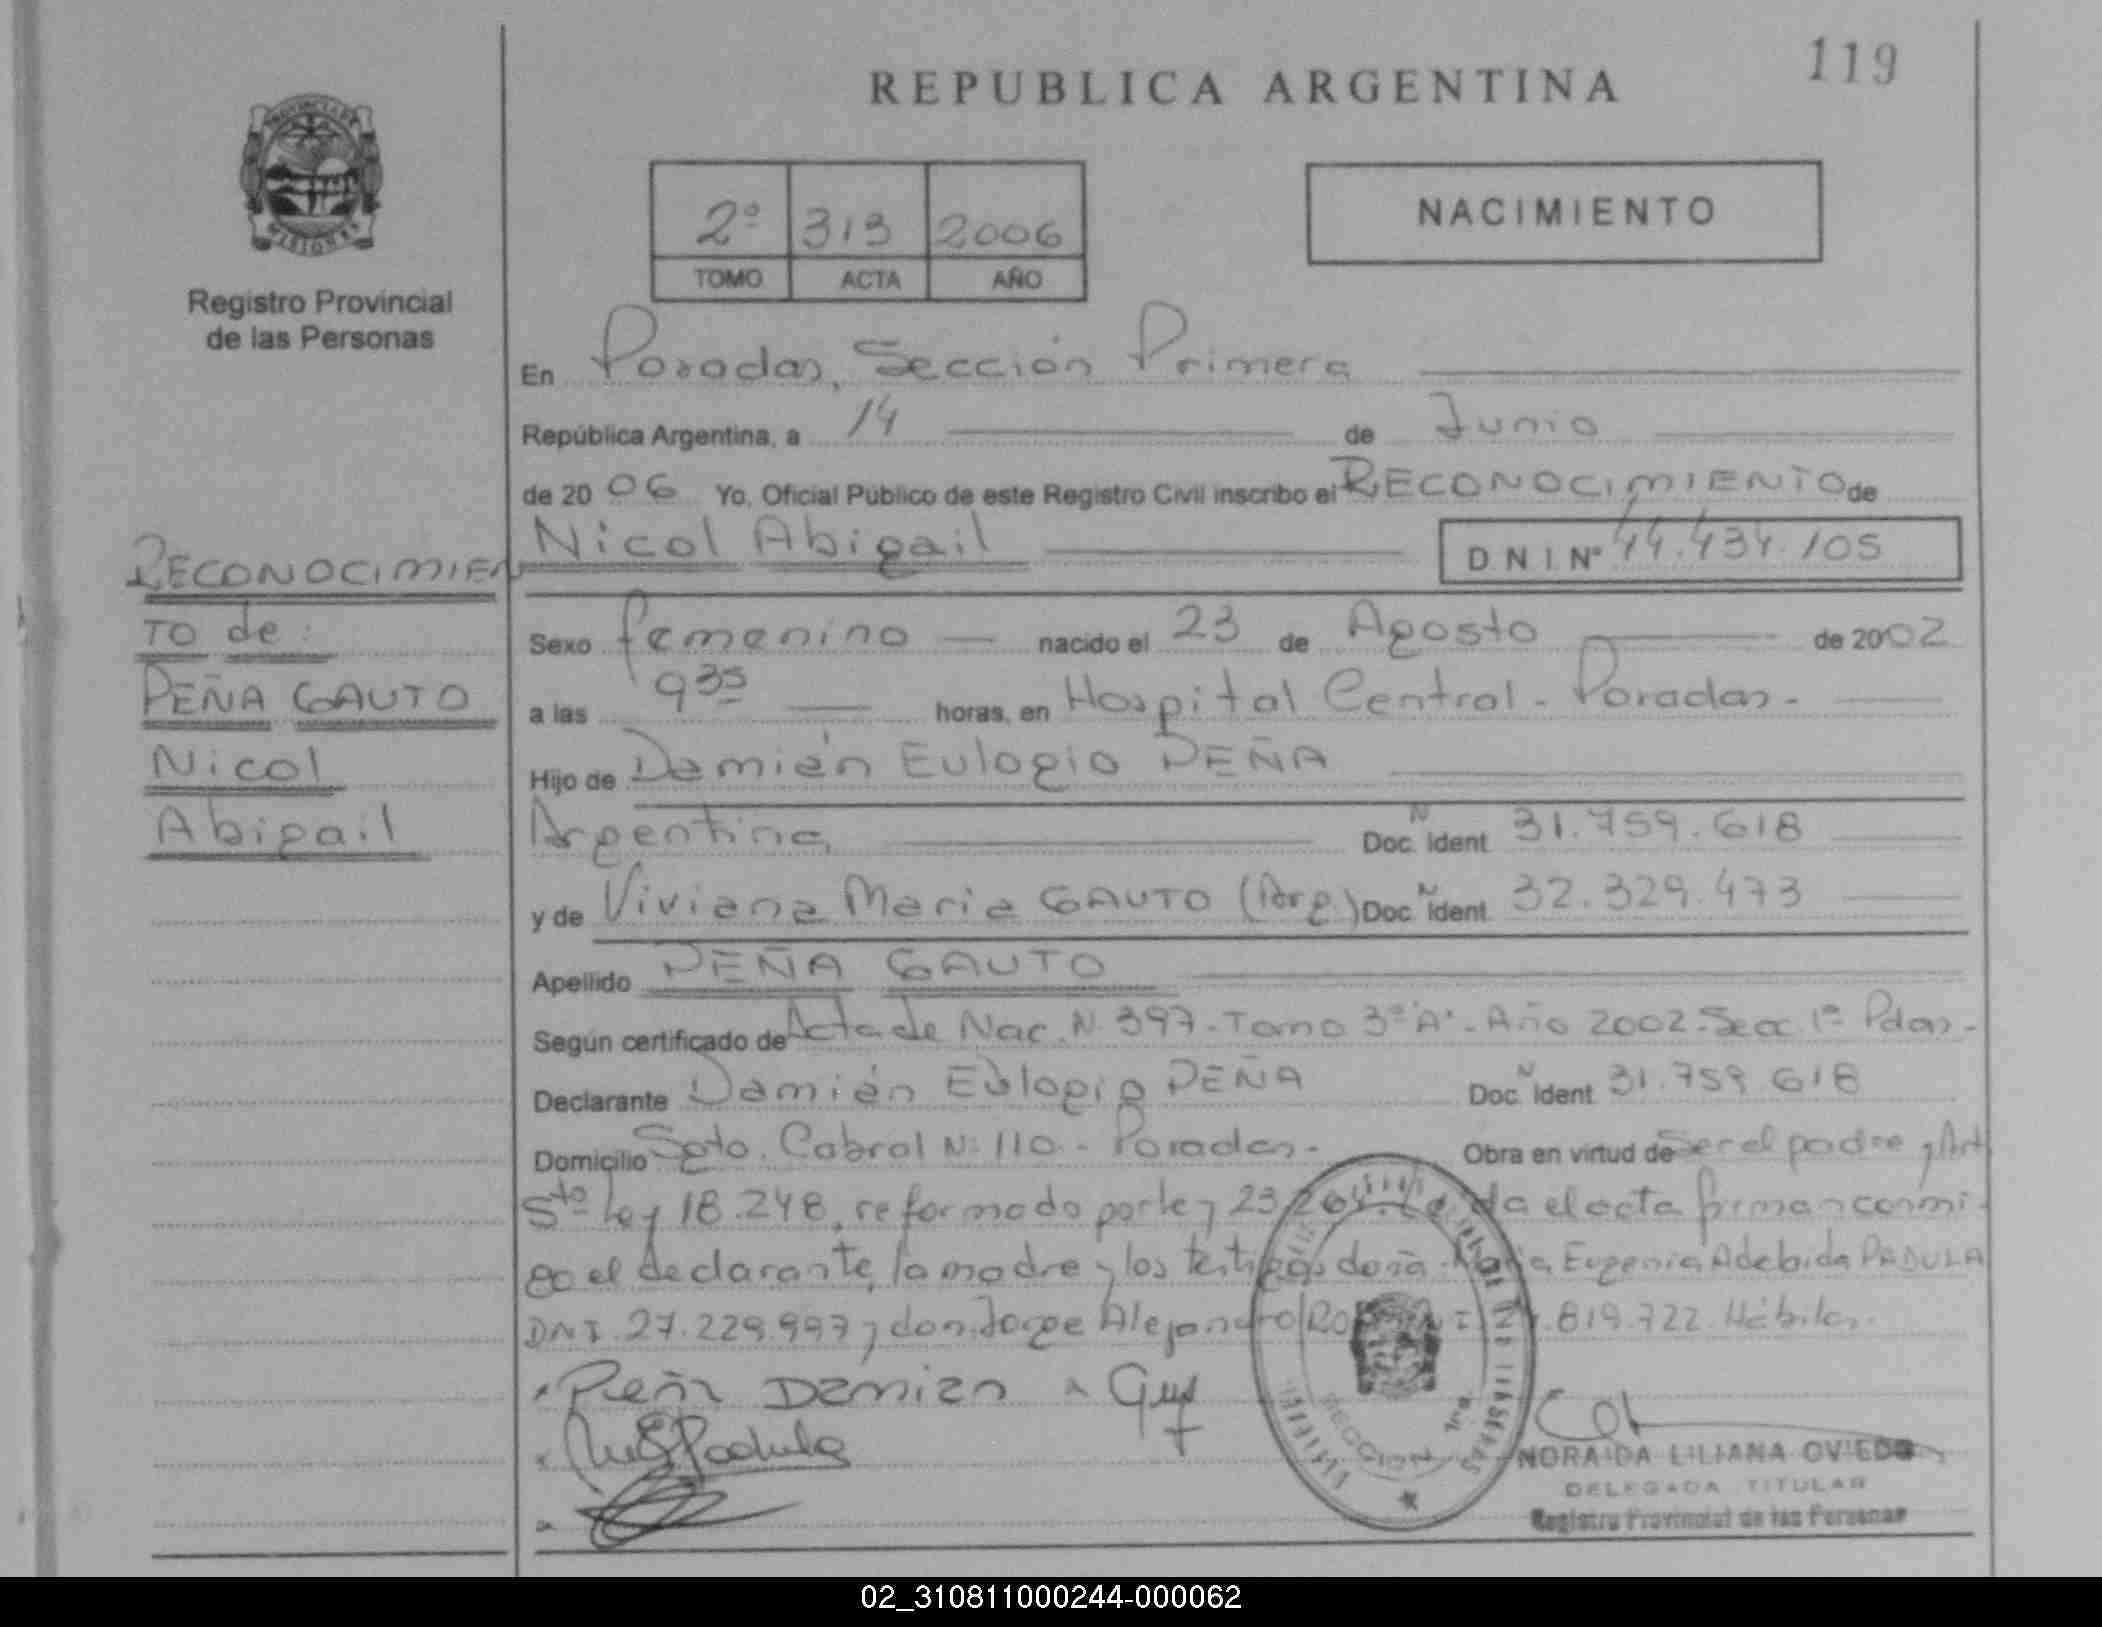 119
REPUBLICA ARGENTINA
PROVINCIA DE
MISIONES
Registro Provincial
de las Personas
2º 313 2006
TOMO ACTA AÑO
NACIMIENTO
En Posadas, Sección Primera
República Argentina, a 14 de Junio
de 2006 Yo, Oficial Público de este Registro Civil inscribo el RECONOCIMIENTO de
Nicol Abigail D N I Nº 44.434.105
RECONOCIMIEN
TO de:
PEÑA GAUTO
Nicol
Abigail
Sexo femenino nacido el 23 de Agosto de 2002
a las 9 35 horas, en Hospital Central - Posadas -
Hijo de Damián Eulogio PEÑA
Argentina Doc. Ident. N 31.759.618
y de Viviana Maria GAUTO (Arg.) Doc. Ident. N 32.329.473
Apellido PEÑA GAUTO
Según certificado de Acta de Nac. N. 397 - Tomo 3º "A" - Año 2002 - Secc. 1ª Pdas -
Declarante Damián Eulogio PEÑA Doc. Ident. N 31.759.618
Domicilio Sgto. Cabral Nº 110 - Posadas - Obra en virtud de Ser el padre y Art
5to ley 18.248, reformado por ley 23 da el acta firman conmi-
go el declarante, la madre y los testigos doña Eugenia Adelaida PADULA
DNI. 27.229.997 y don Jorge Alejandro .819.722. Hábiles.
Peña Damian
SECCION 1ra
NORAIDA LILIANA OVIEDO
DELEGADA TITULAR
Registro Provincial de las Personas
02_310811000244-000062